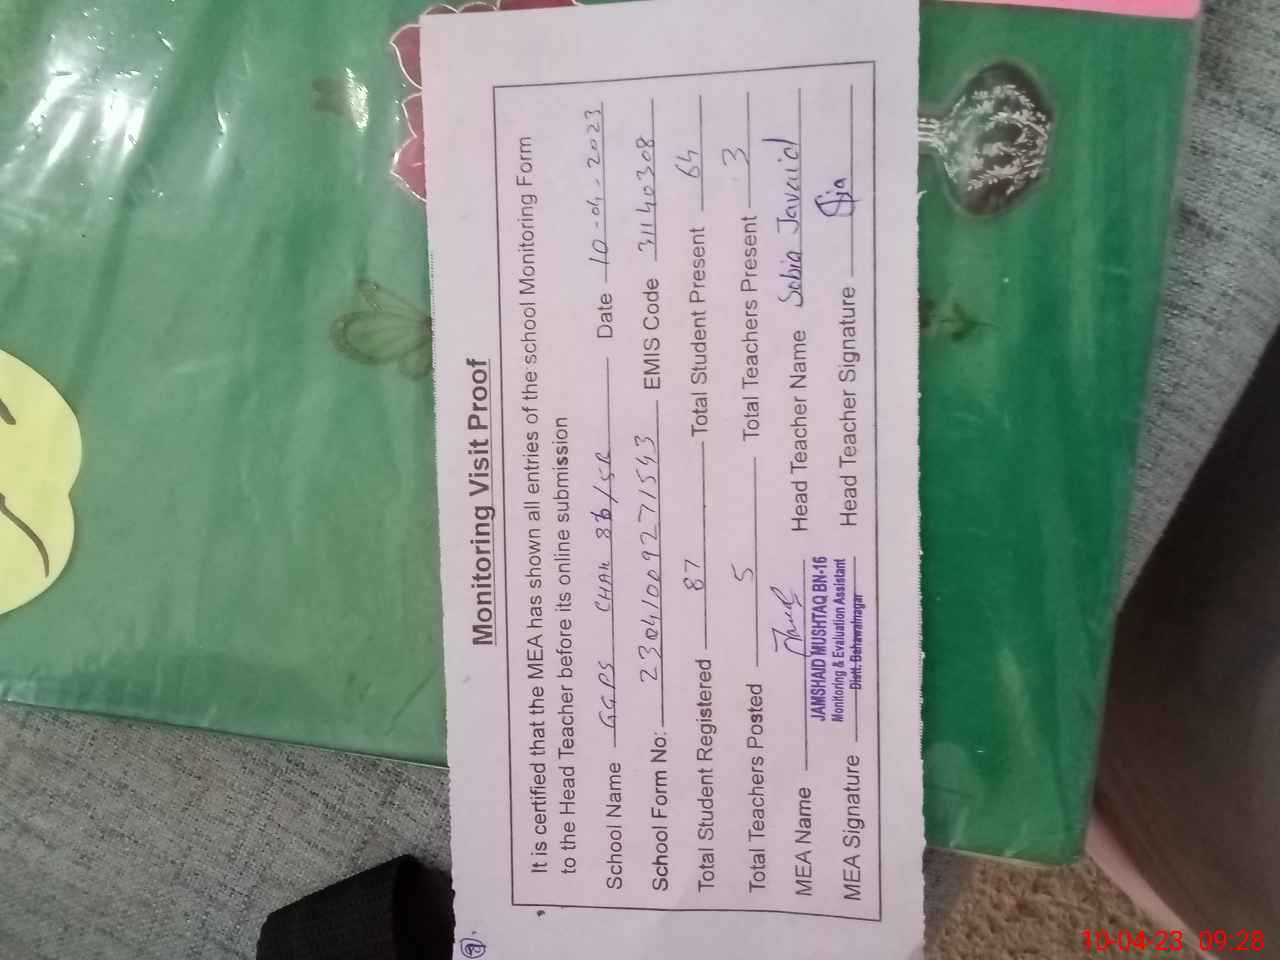 Monitoring Visit Proof
It is certified that the MEA has shown all entries of the school Monitoring Form
to the Head Teacher before its online submission
School Name GGPS CHAK 86/5R Date 10-04-2023
School Form No: 23041009271543 EMIS Code 31140308
Total Student Registered 87 Total Student Present 64
Total Teachers Posted 5 Total Teachers Present 3
MEA Name Head Teacher Name Sobia Javaid
JAMSHAID MUSHTAQ BN-16
Monitoring & Evaluation Assistant
Distt. Bahawalnagar
MEA Signature Head Teacher Signature
10-04-23 09:28